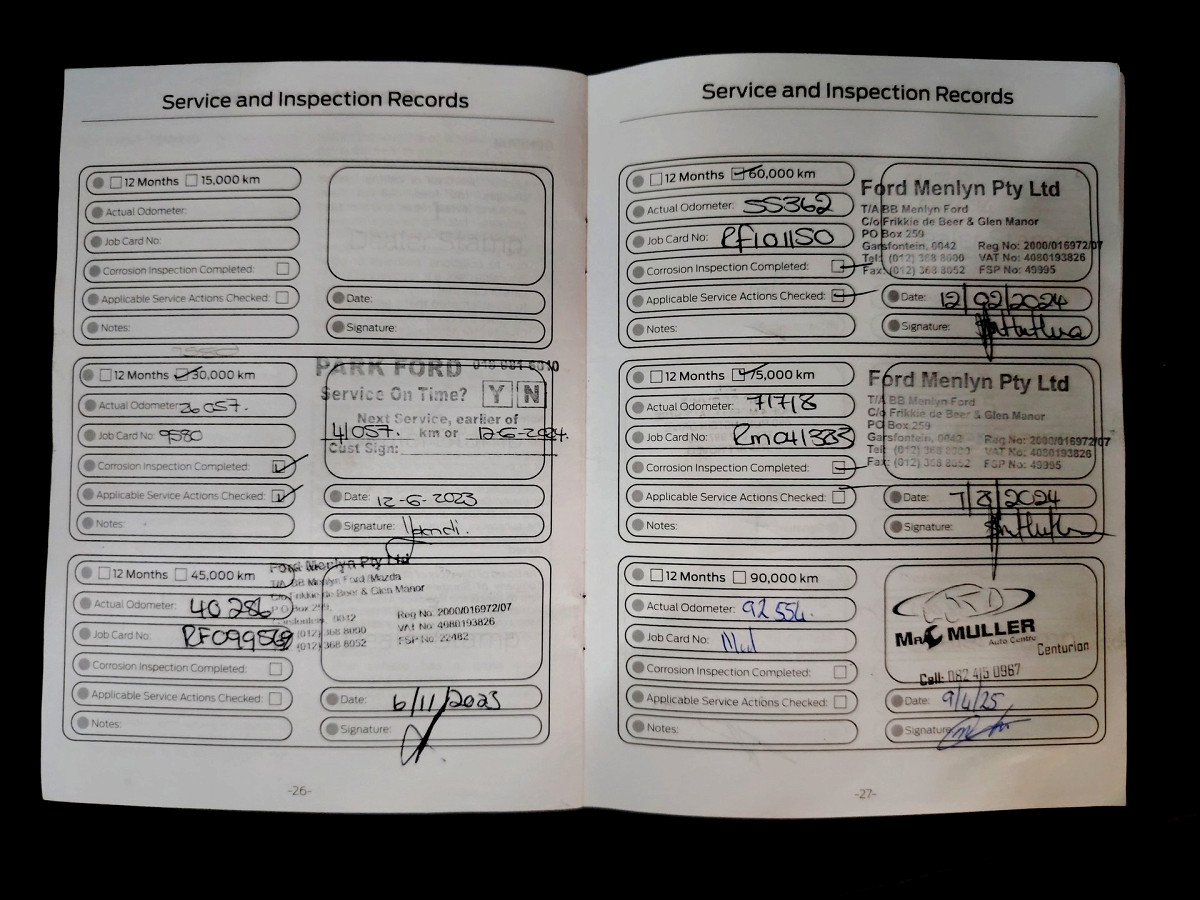 Service and Inspection Records
12 Months 15,000 km
Actual Odometer:
Job Card No:
Corrosion Inspection Completed:
Applicable Service Actions Checked:
Notes:
Dealer Stamp
Date:
Signature:
12 Months 30,000 km
Actual Odometer: 26 057.
Job Card No: 9580
Corrosion Inspection Completed:
Applicable Service Actions Checked:
Notes:
PARK FORD
Service On Time? Y N
Next Service, earlier of
41057. km or 12-6-2024.
Cust Sign:
Date: 12-6-2023
Signature:
12 Months 45,000 km
Actual Odometer: 40 286
Job Card No:
Corrosion Inspection Completed:
Applicable Service Actions Checked:
Notes:
Ford Menlyn Pty Ltd
T/A BB Menlyn Ford/Mazda
C/o Frikkie de Beer & Glen Manor
P O Box 259,
Garsfontein, 0042 Reg No. 2000/016972/07
(012) 368 8000 VAT No. 4080193826
(012) 368 8052 FSP No. 22482
Date: 6/11/2023
Signature:
-26-
Service and Inspection Records
12 Months 60,000 km
Actual Odometer: 55362
Job Card No: Rf101150
Corrosion Inspection Completed:
Applicable Service Actions Checked:
Notes:
Ford Menlyn Pty Ltd
T/A BB Menlyn Ford
C/o Frikkie de Beer & Glen Manor
PO Box 259
Garsfontein, 0042 Reg No: 2000/016972/07
Tel: (012) 368 8000 VAT No: 4080193826
Fax: (012) 368 8052 FSP No: 49995
Date: 12/02/2024
Signature:
12 Months 75,000 km
Actual Odometer: 71718
Job Card No: Rm041383
Corrosion Inspection Completed:
Applicable Service Actions Checked:
Notes:
Ford Menlyn Pty Ltd
T/A BB Menlyn Ford
C/o Frikkie de Beer & Glen Manor
PO Box 259
Garsfontein, 0042 Reg No: 2000/016972/07
Tel: (012) 368 8000 VAT No: 4080193826
Fax: (012) 368 8052 FSP No: 49995
Date: 7/8/2024
Signature:
12 Months 90,000 km
Actual Odometer: 92 554.
Job Card No:
Corrosion Inspection Completed:
Applicable Service Actions Checked:
Notes:
MR C MULLER
Auto Centre
Centurion
Cell: 082 415 0967
Date: 9/4/25
Signature:
-27-